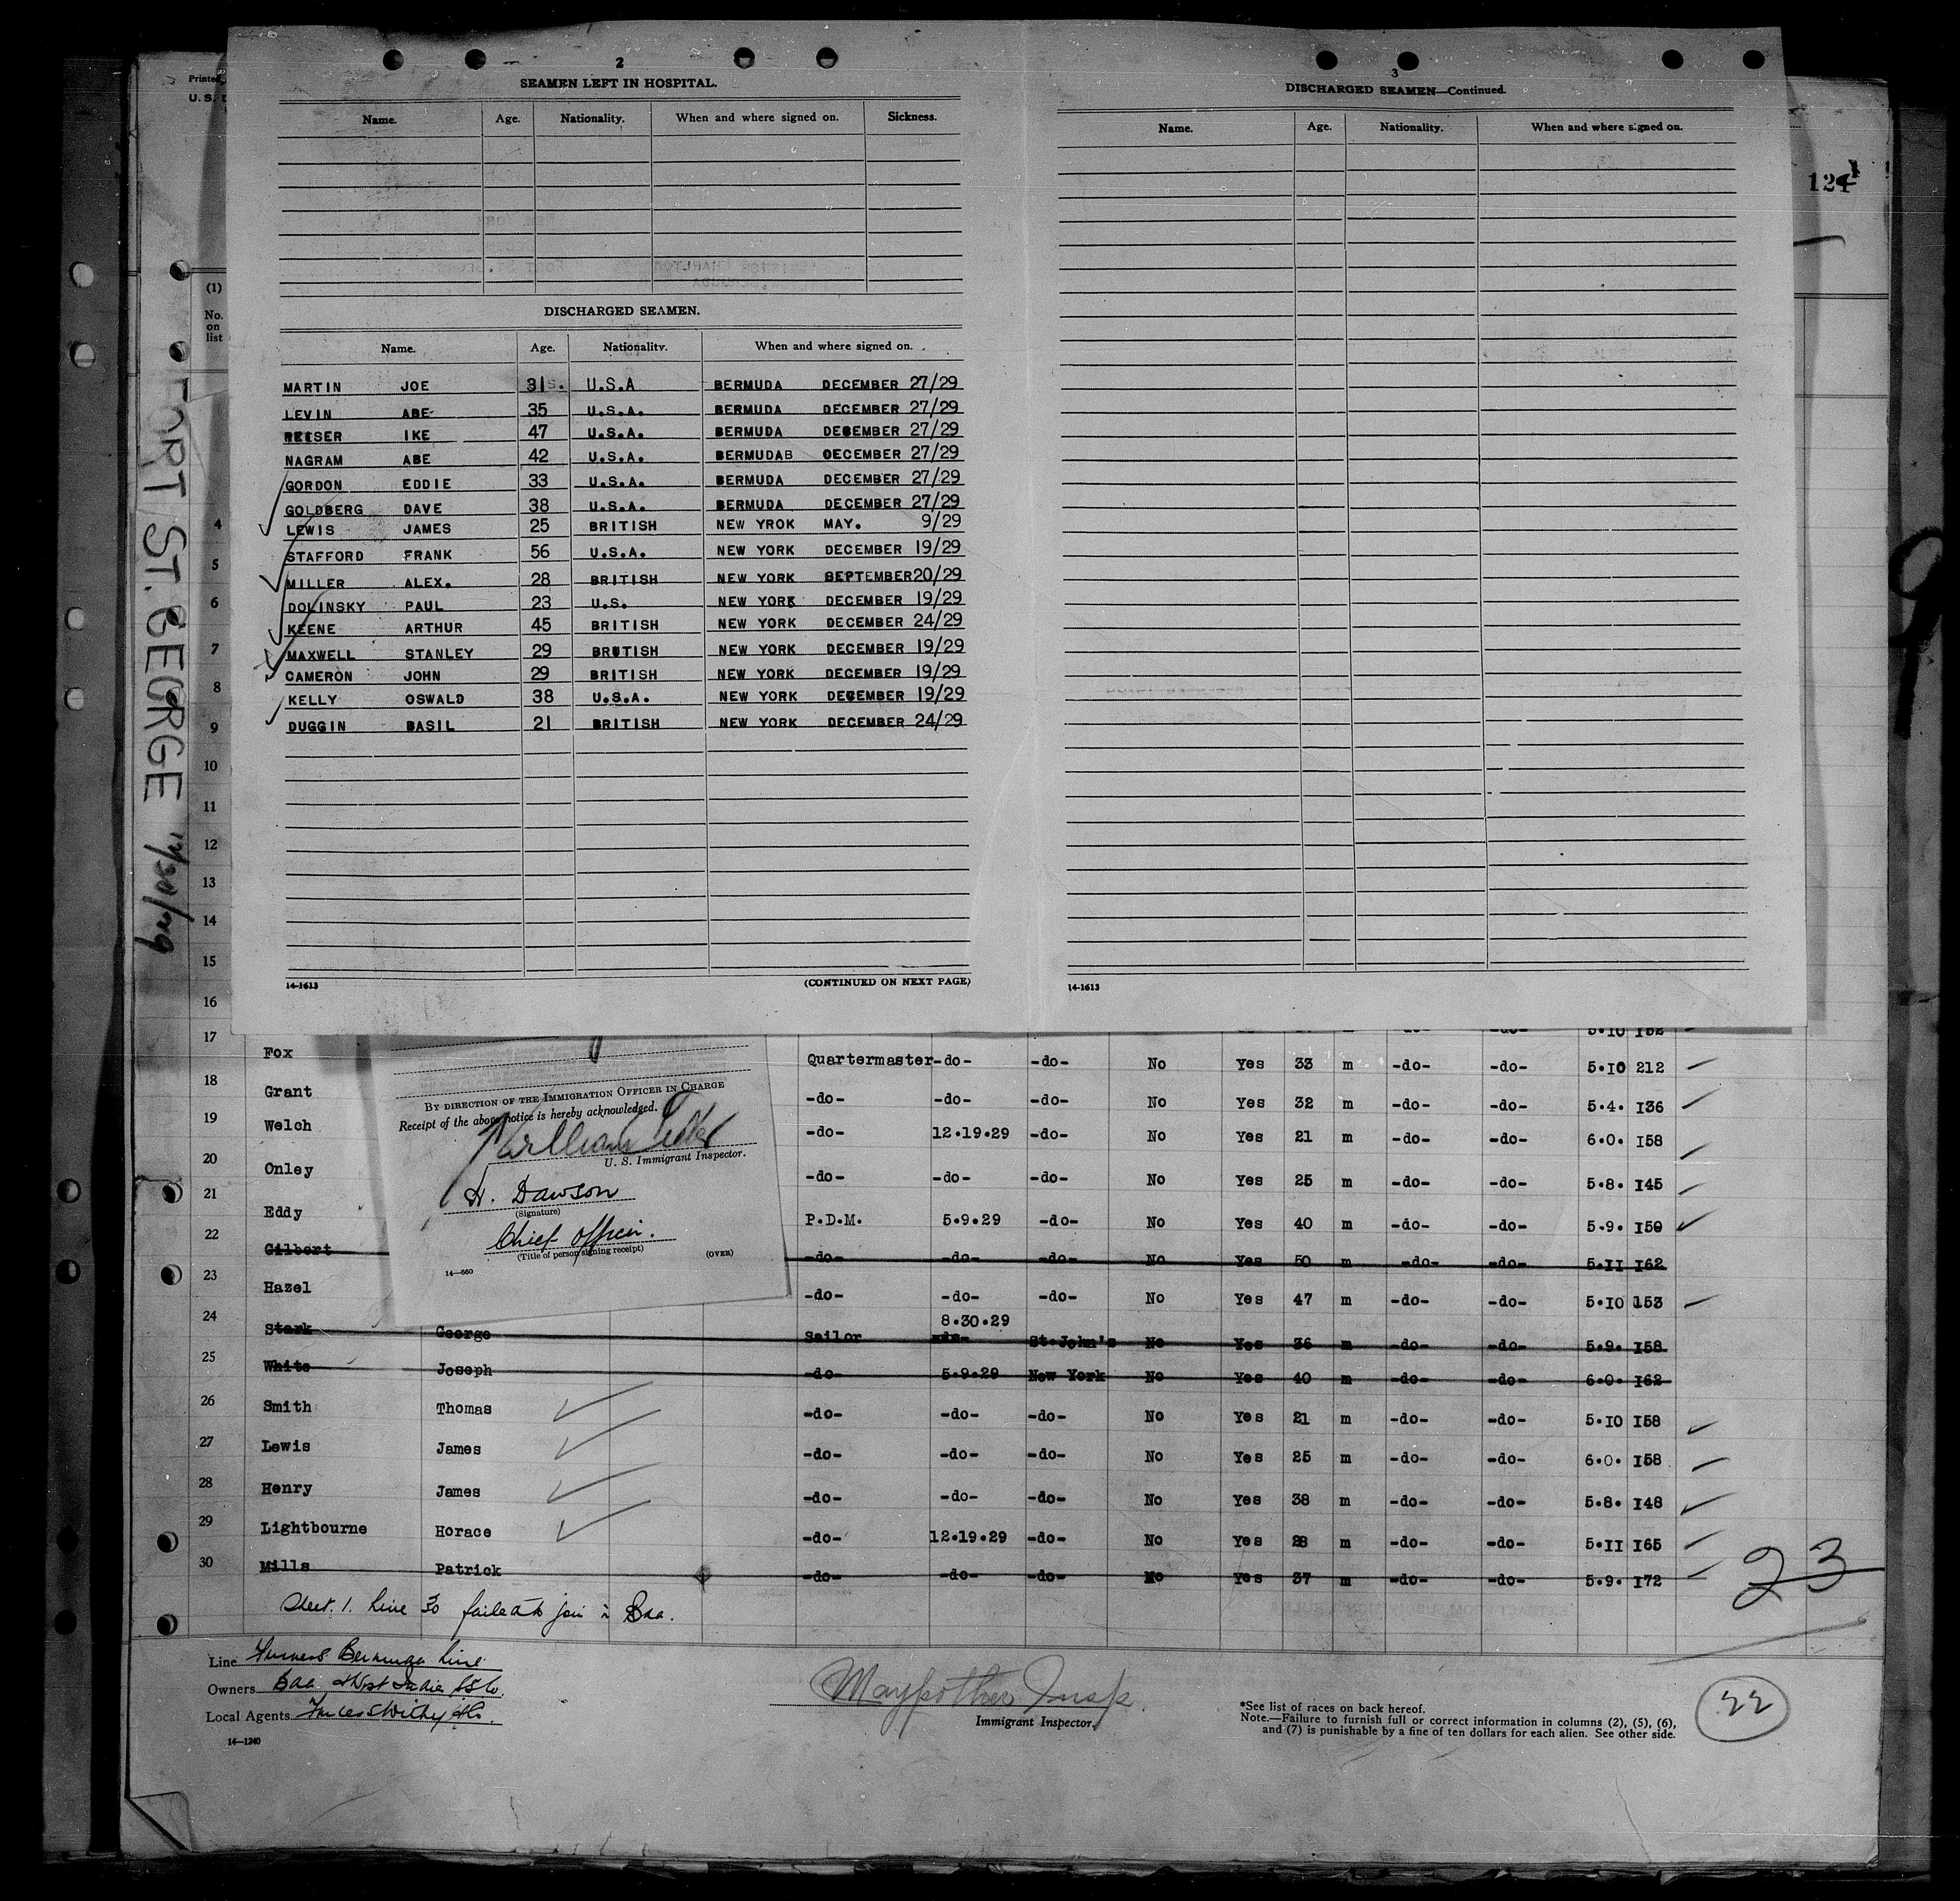 Printed
U. S. D
(1)
No.
on
list
FORT ST. GEORGE
124
2
SEAMEN LEFT IN HOSPITAL.
Name. Age. Nationality. When and where signed on. Sickness.
DISCHARGED SEAMEN.
Name. Age. Nationality. When and where signed on.
MARTIN JOE 31 U.S.A BERMUDA DECEMBER 27/29
LEVIN ABE 35 U.S.A. BERMUDA DECEMBER 27/29
REISER IKE 47 U.S.A. BERMUDA DECEMBER 27/29
NAGRAM ABE 42 U.S.A. BERMUDAB DECEMBER 27/29
GORDON EDDIE 33 U.S.A. BERMUDA DECEMBER 27/29
GOLDBERG DAVE 38 U.S.A. BERMUDA DECEMBER 27/29
4 LEWIS JAMES 25 BRITISH NEW YROK MAY. 9/29
STAFFORD FRANK 56 U.S.A. NEW YORK DECEMBER 19/29
5 MILLER ALEX. 28 BRITISH NEW YORK SEPTEMBER 20/29
6 DOLINSKY PAUL 23 U.S. NEW YORK DECEMBER 19/29
KEENE ARTHUR 45 BRITISH NEW YORK DECEMBER 24/29
7 MAXWELL STANLEY 29 BRUTISH NEW YORK DECEMBER 19/29
CAMERON JOHN 29 BRITISH NEW YORK DECEMBER 19/29
8 KELLY OSWALD 38 U.S.A. NEW YORK DECEMBER 19/29
9 DUGGIN BASIL 21 BRITISH NEW YORK DECEMBER 24/29
10
11
12
13
14
15
16
14-1613 (CONTINUED ON NEXT PAGE)
3
DISCHARGED SEAMEN—Continued.
Name. Age. Nationality. When and where signed on.
14-1613
17 m -do- -do- 5.10 152
Fox Quartermaster -do- -do- No Yes 33 m -do- -do- 5.10 212
18 Grant -do- -do- -do- No Yes 32 m -do- -do- 5.4. 136
19 Welch -do- 12.19.29 -do- No Yes 21 m -do- -do- 6.0. 158
20 Onley -do- -do- -do- No Yes 25 m -do- -do- 5.8. 145
21 Eddy P.D.M. 5.9.29 -do- No Yes 40 m -do- -do- 5.9. 150
22 Gilbert -do- -do- -do- No Yes 50 m -do- -do- 5.11 162
23 Hazel -do- -do- -do- No Yes 47 m -do- -do- 5.10 153
8.30.29
24 Stark George Sailor -do- St.John's No Yes 36 m -do- -do- 5.9. 158
25 White Joseph -do- 5.9.29 New York No Yes 40 m -do- -do- 6.0. 162
26 Smith Thomas -do- -do- -do- No Yes 21 m -do- -do- 5.10 158
27 Lewis James -do- -do- -do- No Yes 25 m -do- -do- 6.0. 158
28 Henry James -do- -do- -do- No Yes 38 m -do- -do- 5.8. 148
29 Lightbourne Horace -do- 12.19.29 -do- No Yes 28 m -do- -do- 5.11 165
30 Mills Patrick -do- -do- -do- No Yes 37 m -do- -do- 5.9. 172
23
By direction of the Immigration Officer in Charge
Receipt of the above notice is hereby acknowledged.
William
U. S. Immigrant Inspector.
H. Dawson
(Signature)
Chief Officer.
(Title of person signing receipt) (OVER)
14—660
Sheet. 1. Line 30 failed to join in Bda.
Line Furness Bermuda Line
Owners Bda. & West Indies SS Co.
Local Agents Furness Withy & Co.
14—1240
Immigrant Inspector.
*See list of races on back hereof.
Note.—Failure to furnish full or correct information in columns (2), (5), (6),
and (7) is punishable by a fine of ten dollars for each alien. See other side.
22